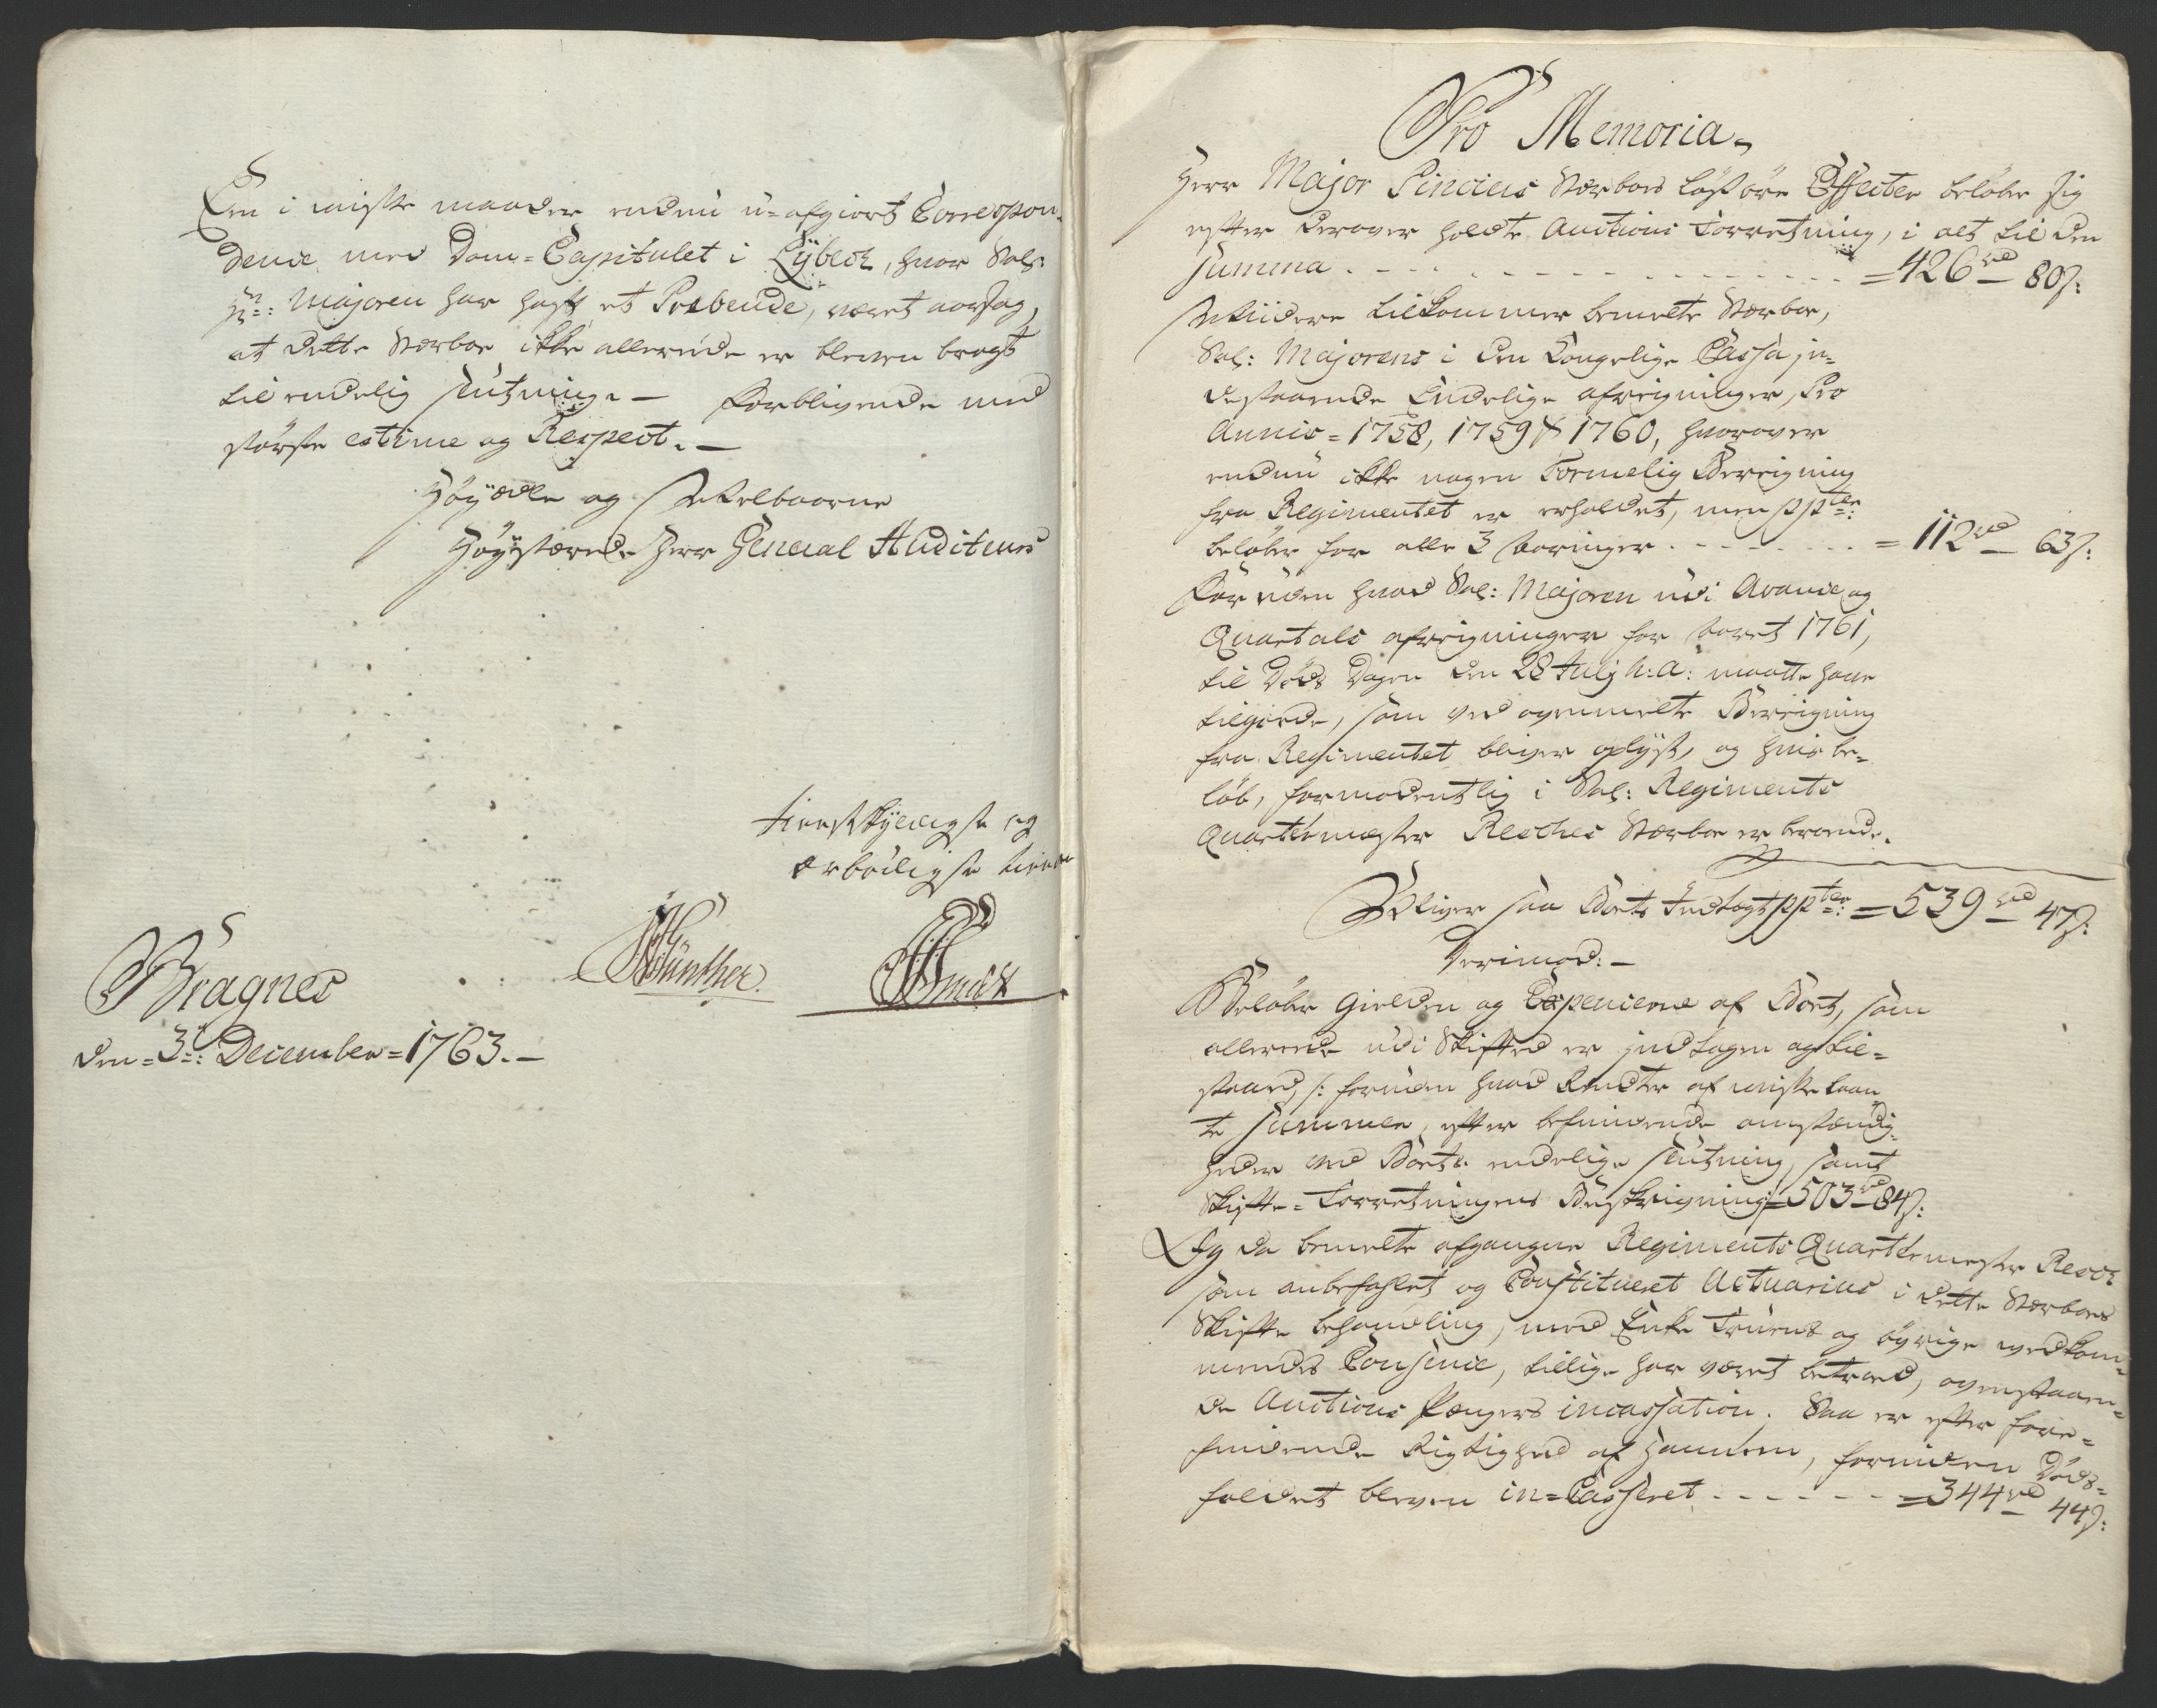 Een i visse maader endnu u-afgiort Correspon-
dence med Dom-Capitulet i Lÿbech, hvor Sal:
Hr: Majoren har haft et Præbende, været aarsag,
at dette Stærboe ikke allereede er bleven bragt
til endelig slutning. — Forblivende med
største estime og Respect. —
Höÿædle og Velbaarne
Höÿstærede Herr General Auditeurs
tienstskÿldigste og
ærbödigste tienere
Günther.
Smidt
Bragnes
den =3=: December =1763. —
Pro Memoria.
Herr Major Pincius Stærboes lösöre Effecter belöber sig
efter derover holdte Auctions Forretning, i alt til den
summa . - - - - - - - - - - = 426 rd 80 s:
Videre tilkommer bemelte Stærboe,
Sal: Majorens i den Kongelige Cassa in-
destaaende Endelige afreigninger, Pro
Annis = 1758, 1759 & 1760, hvorover
endnu ikke nogen Formelig Bereigning
fra Regimentet er erholdet, men pptr:
belöber for alle 3 Aaringer . - - - - = 112 rd 63 s:
For uden hvad Sal: Majoren udi Avance og
Quartals afreigninger for Aaret 1761,
til Döds Dagen den 28 Julij h: a: maatte have
tilgode, som ved ovenmelte Bereigning
fra Regimentet bliver oplÿst, og hvis be-
löb, formodentlig i Sal: Regiments
Quarteermester Resches Stærboe er beroende.
Bliver saa Boets Indtægt ppter: = 539 rd 47 s:
Derimod: —
Belöber Gielden og Expencerne af Boet, som
allereede udi Skiftet er indtagen og til-
staaed, /: foruden hvad Rendter af visse laan
te Summer, efter befindende omstændig-
heder ved Boets endelige slutning, samt
Skifte-Forretningens Beskrivning :/ = 503 rd 84 s:
Og da bemelte afgangne Regiments Quarteermester Resch
som anbefahlet og Constitueret Actuarius i dette Stærboes
Skifte behandling, med Enke Fruens og övrige vedkom-
mendes Consence, tillige har været betroed, ovenstaaen-
de Auctions Penges incassation. Saa er efter fore-
findende Rigtighed af Hannem, forinden Döds-
faldet bleven in-Casseret . - - - - - = 344 rd 44 s: